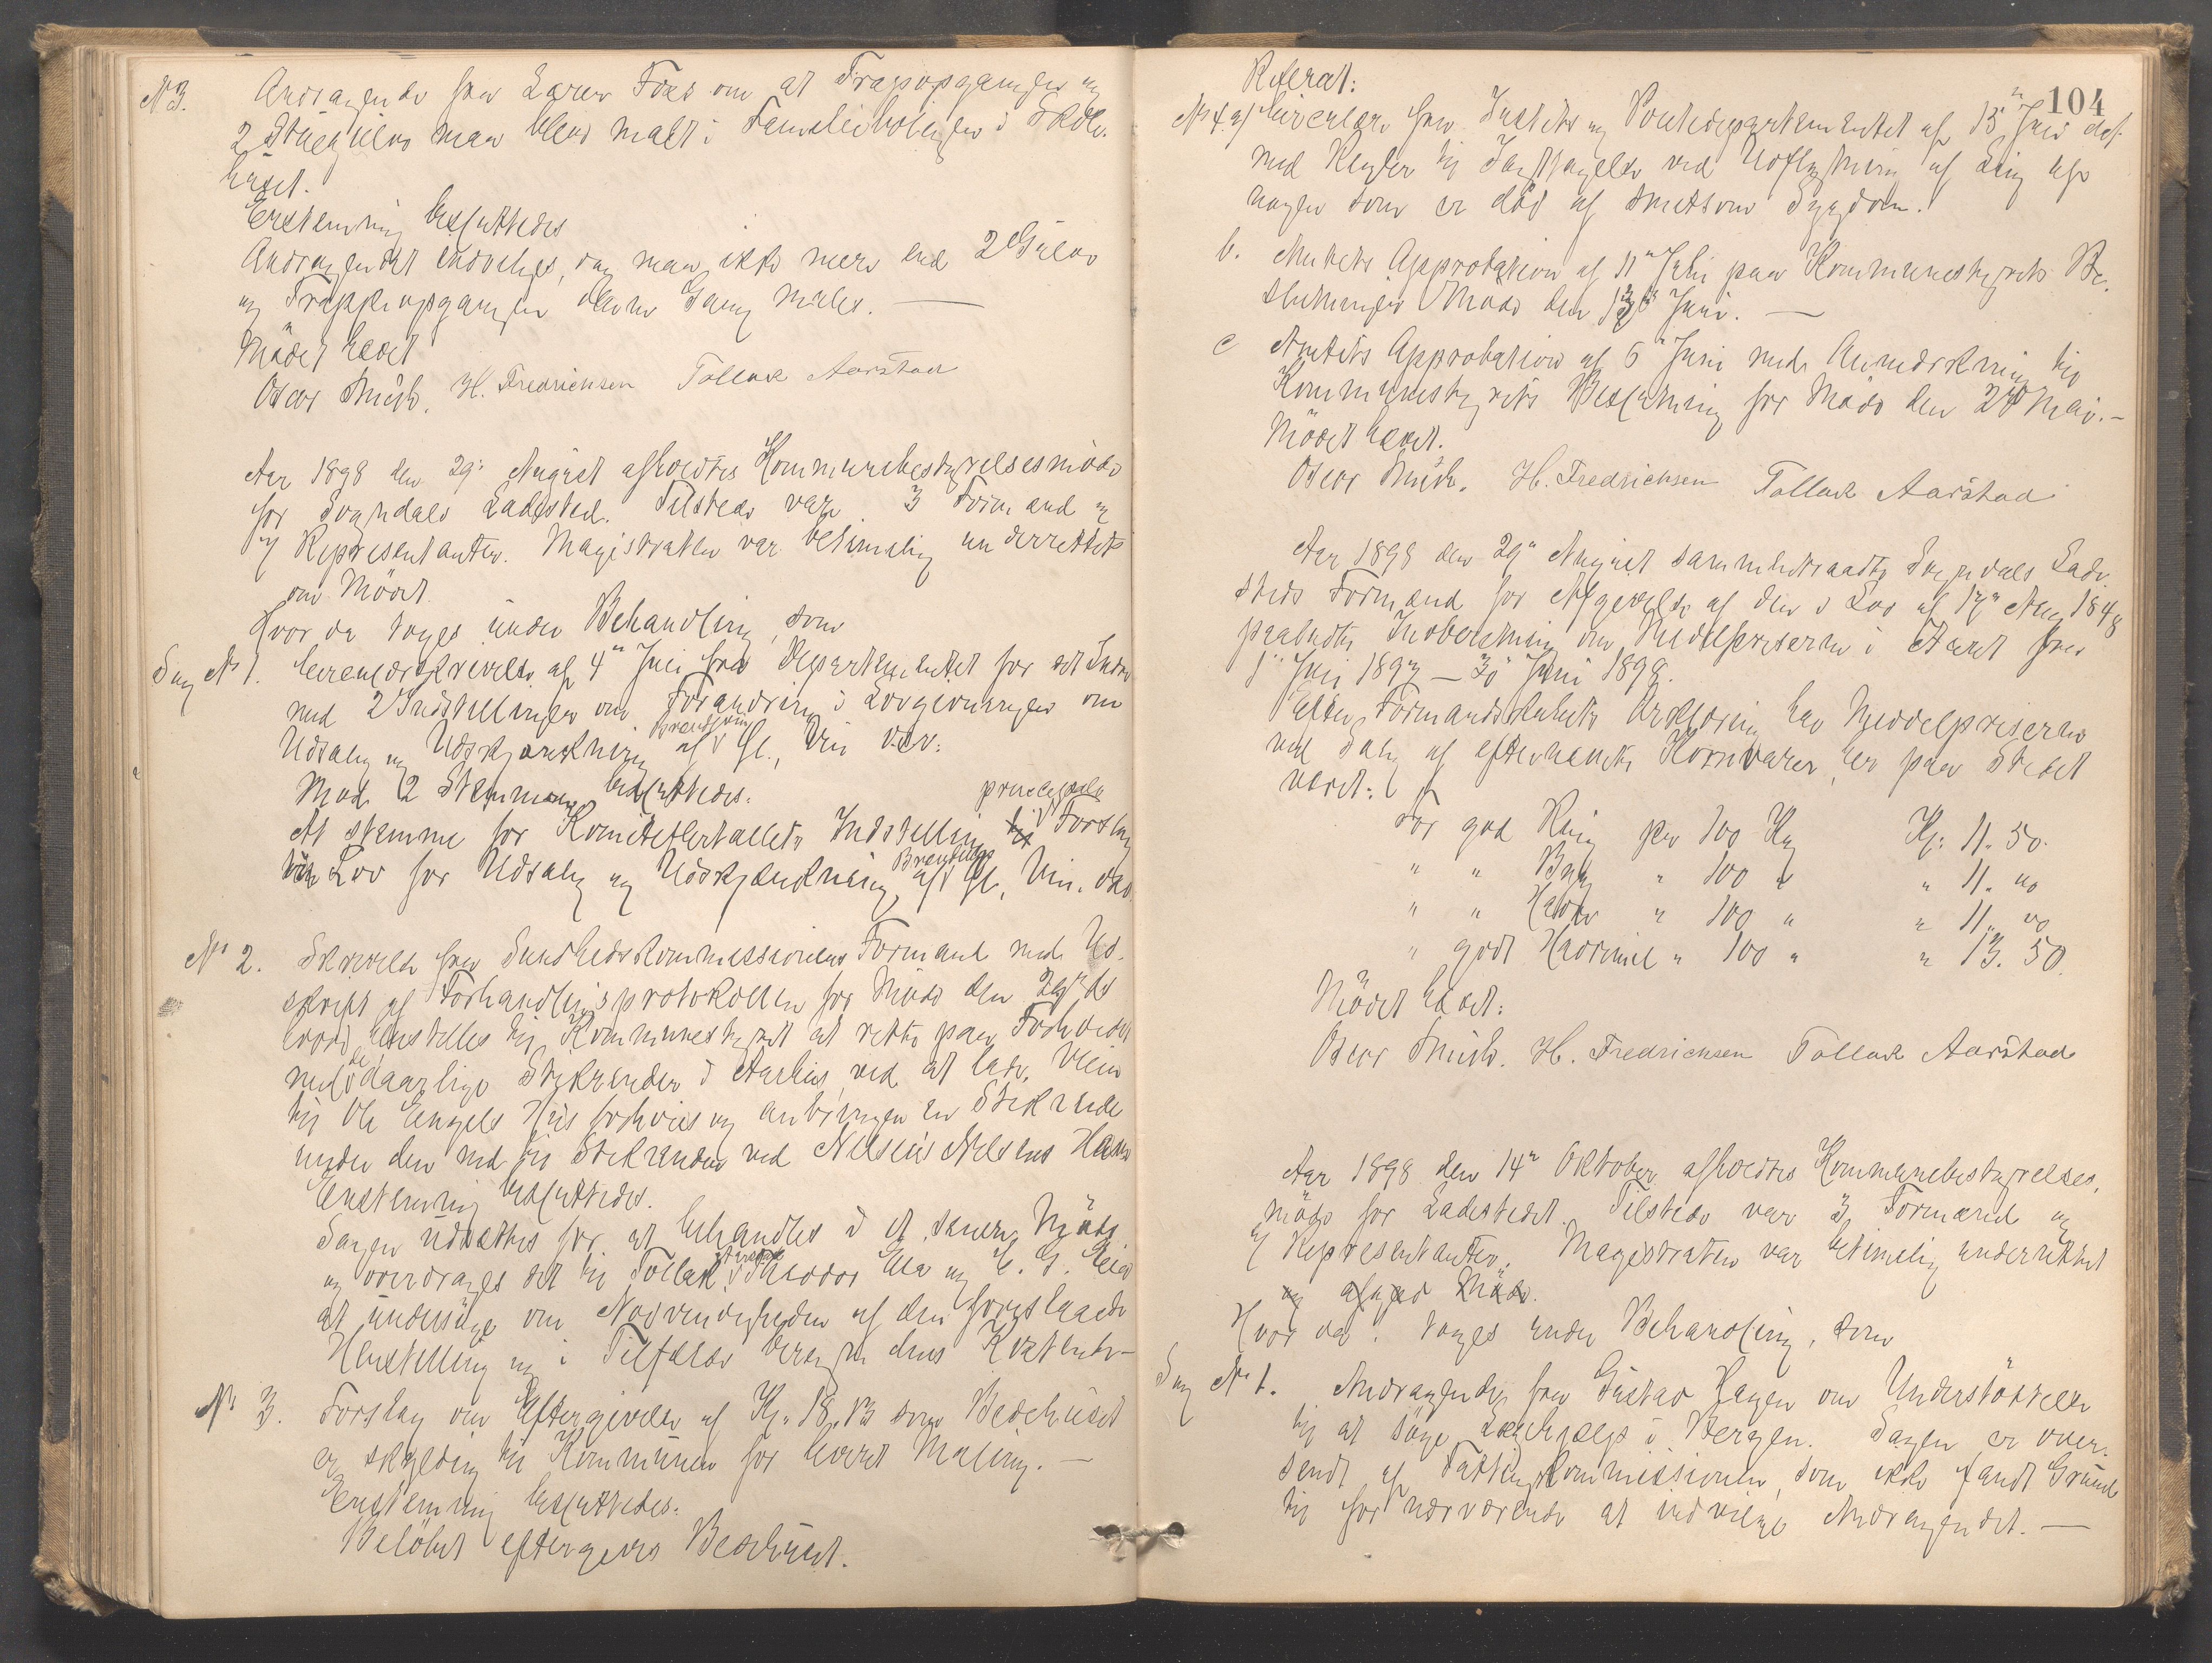 No 3. Andragende fra Lærer Foss om at Trapopgangen og
2 Stuegulve maa blive malt i Familieboligen i Skole-
huset.
Enstemmig besluttedes
Andragendet indvilges, dog maa ikke mere end 2 Gulve
og Trappeopgangen denne Gang males. —
Mödet hævet
Oscar Munch. H. Fredrichsen Tollack Aarstad
Aar 1898 den 29. August afholdtes Kommunebestyrelsesmöde
for Sogndals Ladested. Tilstede var 3 Formænd og
7 Representanter. Magistraten var betimelig underrettet
om Mödet.
Hvor da toges under Behandling, som
Sag No 1. Circulærskrivelse af 4" Juli fra Departementet for det Indre
med 2 Indstillinger om Forandring i Lovgivningen om
Udsalg og Udskjænkning af Brændevin Öl, Vin &c.
Mod 2 Stemmer besluttedes:
At stemme for Komiteflertallets Indstilling principale Forslag
til Lov for Udsalg og Udskjænkning af Brændevin Öl, Vin.
No 2. Skrivelse fra Sundhedskommissionens Formand med Ud-
skrift af Forhandlingsprotokollen for Möde den
hvori henstilles til Kommunestyret at rette paa Forholdet
med de daarlige Stikrender i Aarhus ved at lade Veien
til Ole Engels Hus forhöies og anbringe en Stikrende
under den ned til Stikrenden ved Nilsens Have
Enstemmig besluttedes.
Sagen udsættes for at behandles i et senere Möde
og overdrages det til Tollak Aarstad, Theodor Eia og
at undersöge om Nödvendigheden af den foreslaaede
Henstilling og i Tilfælde beregne dens Kostende —
No 3. Forslag om Eftergivelse af Kr. 18.13 som Bedehuset
er skyldig til Kommunen for Maling. —
Enstemmig besluttedes:
Belöbet eftergives Bedehuset.
104
Referat:
No 4. a) Circulære fra Justits og Politidepartementet af 15" Juni
med Regler til Iagttagelse ved Udflytning af Lig af
nogen som er död af smitsom Sygdom.
b. Amtets Approbation af 11" Juli paa Kommunestyrets Be-
slutninger i Möde den 13" Juni. —
c Amtets Approbation af 6" Juni med Anmærkning til
Kommunestyrets Beslutning for Möde den Mai. —
Mödet hævet.
Oscar Munch. H. Fredrichsen Tollack Aarstad
Aar 1898 den 29" August sammentraadte Sogndals Lade-
steds Formænd for Afgivelse af den i Lov af 17" Aug 1848
paabudte Indberetning om Middelpriserne i Aaret fra
1" Juli 1897 – 30 Juni 1898.
Efter Formandskabets Erklæring har Middelpriserne
ved Salg af eftternævnte Kornvarer her paa Stedet
været:
For god Rug per 100 Kg Kr: 11. 50.
" " Byg " 100 " " 11. 00
" " Havre " 100 " " 11. 00
" godt Havremel " 100 " " 13. 50.
Mödet hævet:
Oscar Munch. H. Fredrichsen Tollack Aarstad
Aar 1898 den 14" Oktober afholdtes Kommunebestyrelses-
möde for Ladestedet. Tilstede var 3 Formænd og
7 Representanter. Magistraten var betimelig underrettet
Hvor da toges under Behandling, som
Sag No 1. Andragende fra Gustav Hagen om Understöttelse
til at söge Lægehjælp i Bergen. Sagen er over-
sendt af Fattigkommissionen, som ikke fandt Grund
til for nærværende at indvilge Andragendet. —